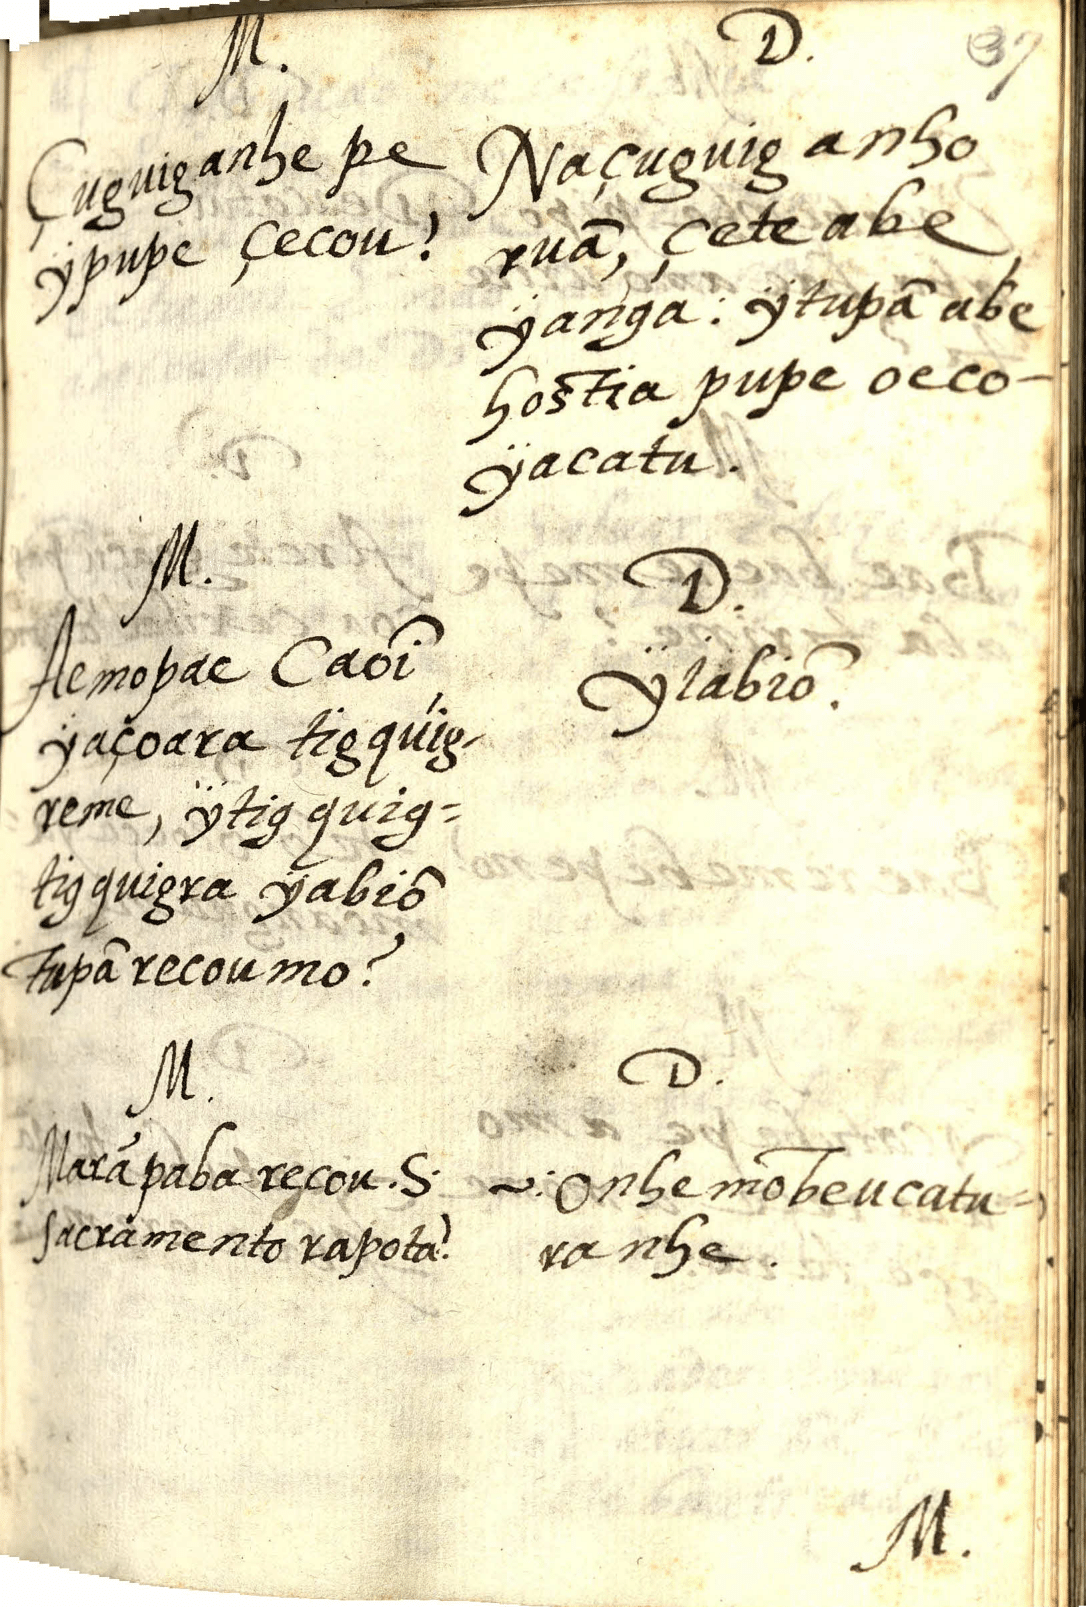 M.
Çuguiganhe pe
ÿpupe çecou?
D.
37
Naçuguig anho
ruã, çete abe
ÿanga: ÿtupã abe
hostia pupe oeco-
ÿacatu.
M.
Aemopae Caoĩ
ÿaçoara tigquig-
reme, ÿtig quig=
tigquigra ÿabiõ
tupã recou mo?
D.
Ÿiabiõ.
M.
Marãpaba recou. S.
sacramento rapota?
D.
~: Onhemõbeucatu=
ranhe.
M.